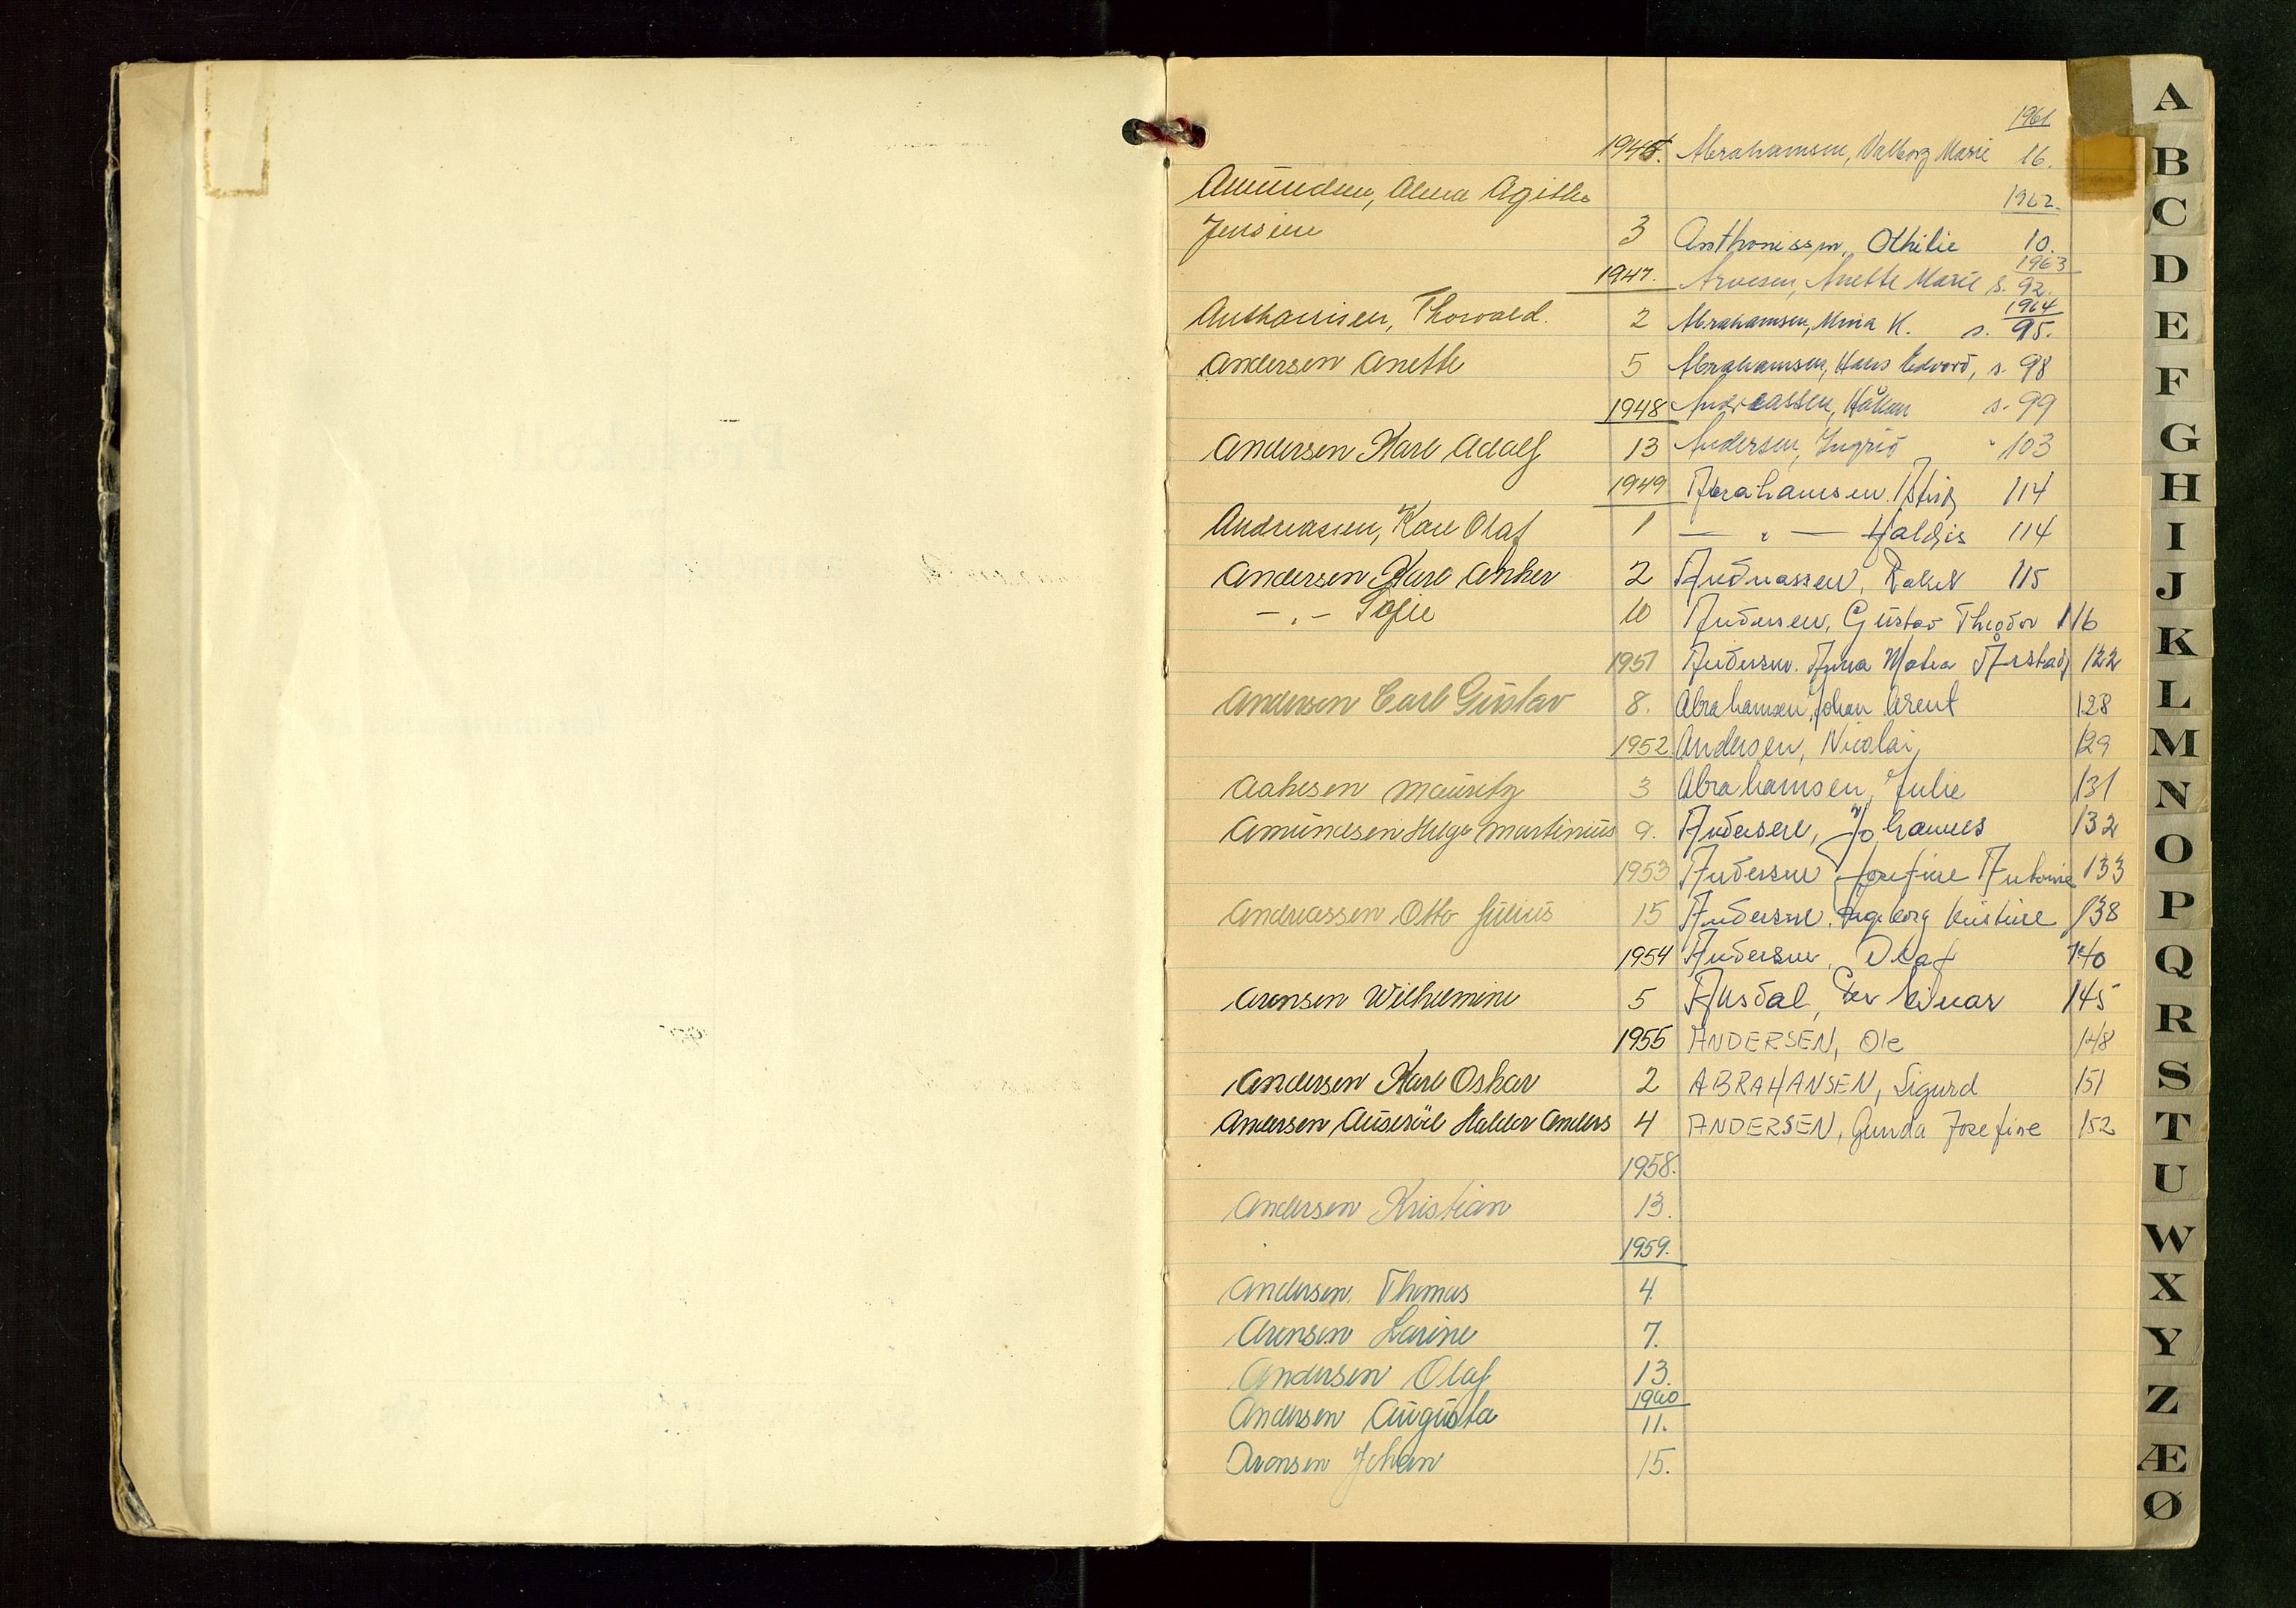 1945.
Amundsen, Alma Agithe
Jensine 3
1947.
Anthonisen, Thorvald. 2
Andersen Anette 5
1948
Andersen Karl Adolf 13
1949
Andreassen, Kare Olaf 1
Andersen Karl Anker 2
- " - Sofie 10
1951
Andersen Carl Gustav 8.
1952
Aanesen Mauritz 3
Amundsen Helge Martinius 9.
1953
Andreassen Otto Julius 15
1954
Arensen Wilhelmine 5
1955
Andersen Karl Oskar 2
Andersen Halldor Anders 4
1958.
Andersen Kristian 13.
1959.
Andersen, Thomas 4.
Arensen Larine 7.
Andersen Olaf 13.
1960
Andersen Augusta 11.
Aronsen Johan 15.
1961
Abrahamsen, Valborg Marie 16.
1962.
Anthonissen, Othilie 10.
1963
Arvesen, Anette Marie s. 92.
1964
Abrahamsen, Mina K. s. 95.
Abrahamsen, Hans Edvard, s. 98
Andreassen, Håkon s. 99
Andersen, Ingrid " 103
Abrahamsen, Astrid 114
— " — Haldis 114
Andreassen, Rakel 115
Andersen, Gustav Theodor 116
Andersen. Anna Matea Årstad 122
Abrahamsen, Johan Arent 128
Andersen, Nicolai, 129
Abrahamsen, Julie 131
Andersen, Johannes 132
Andersen Josefine Antonie 133
Andersen. Ingeborg Kristine 138
Andersen, Olaf 140
Ausdal, Per Einar 145
ANDERSEN, Ole 148
ABRAHANSEN, Sigurd 151
ANDERSEN, Gunda Josefine 152
A
B
C
D
E
F
G
H
I
J
K
L
M
N
O
P
Q
R
S
T
U
W
X
Y
Z
Æ
Ø